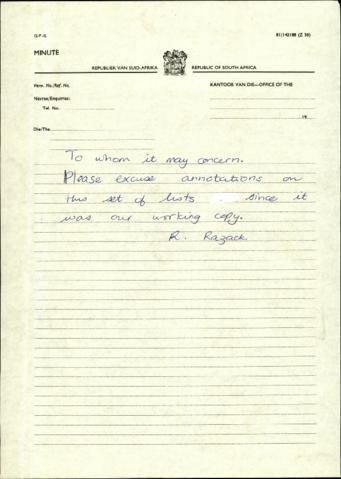 G.P.-S. 81/142188 (Z 16)
MINUTE
REPUBLIEK VAN SUID-AFRIKA REPUBLIC OF SOUTH AFRICA
Verw. No./Ref. No. KANTOOR VAN DIE—OFFICE OF THE
Navrae/Enquiries:
Tel. No.
19
Die/The
To whom it may concern.
Please excuse annotations on
this set of lists since it
was our working copy.
R. Razack.